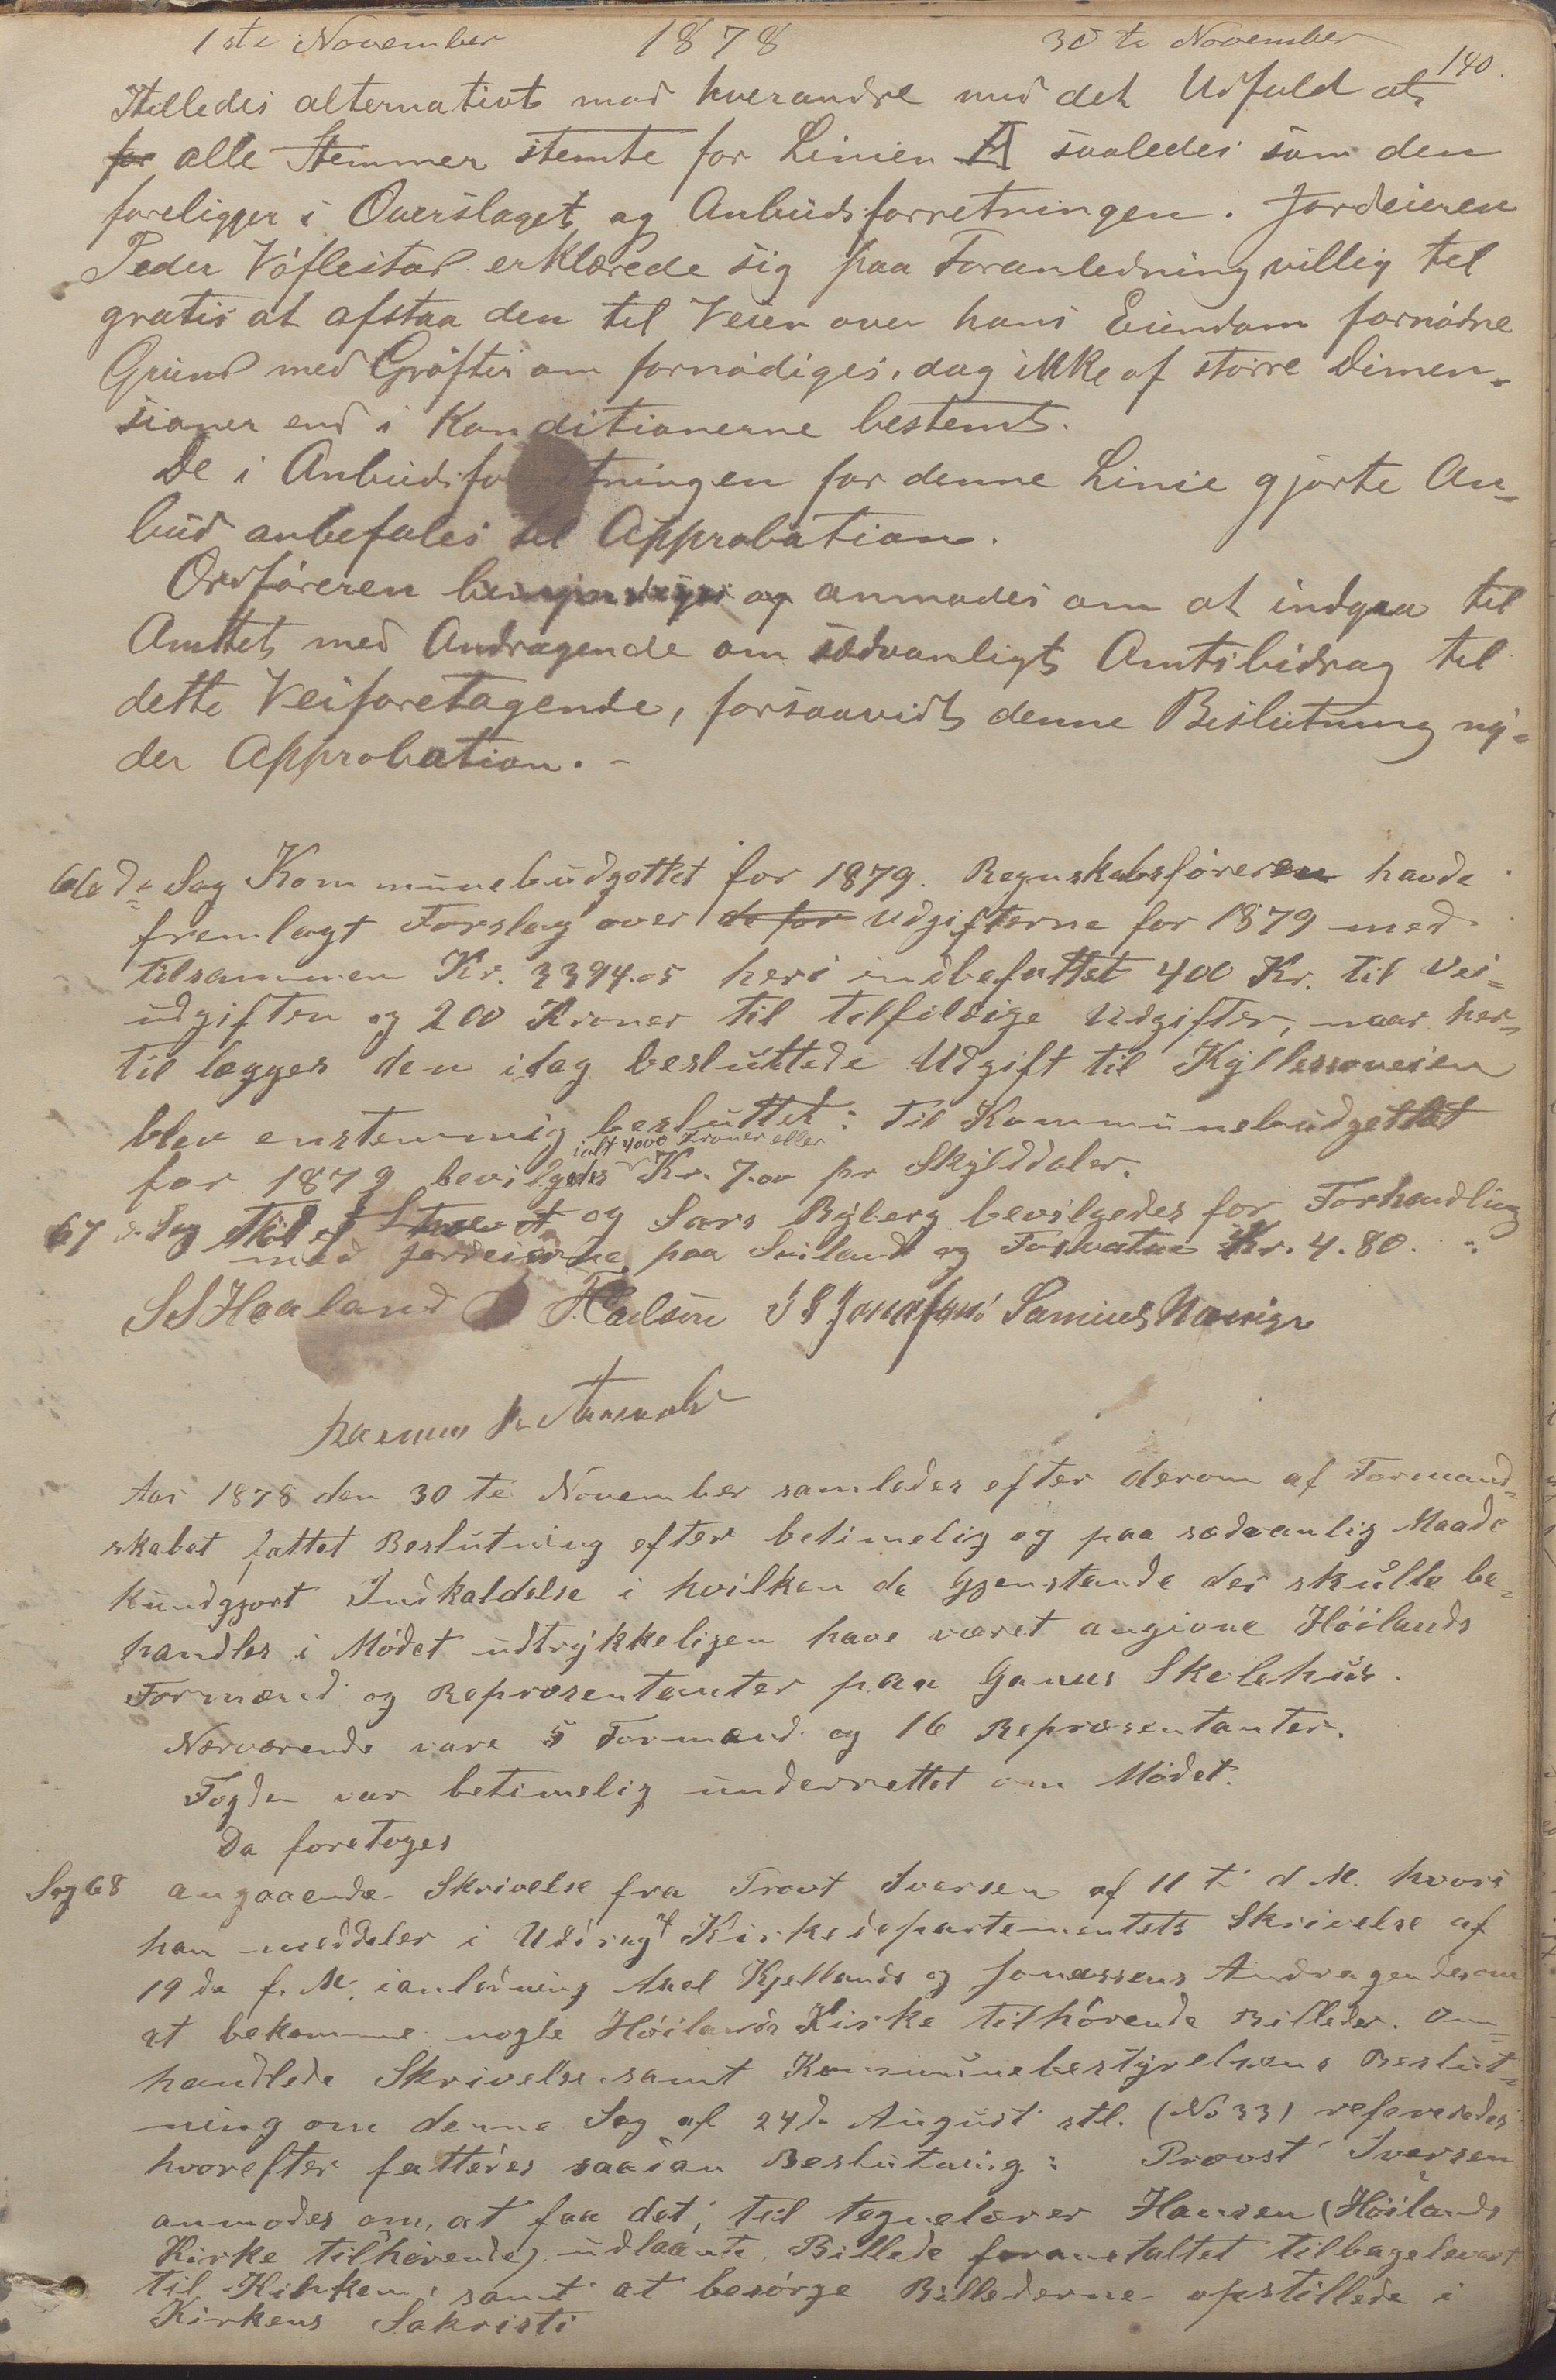 1ste November 1878 30te November
140.
stilledes alternativt mod hverandre med det Udfald at
for alle Stemmer stemte for Linien A saaledes som den
foreligger i Overslaget og Anbudsforretningen. Jordeieren
Peder erklærede sig paa Foranledning villig til
gratis at afstaa den til Veien over hans Eiendom fornødne
Grund med Grøfter om fornødiges, dog ikke af større Dimen-
sioner end i Konditionerne bestemt.
De i Anbudsfo tningen for denne Linie gjorte An-
bud anbefales til Approbation.
Ordføreren og anmodes om at indgaa til
Amtet med Andragende om sædvanligt Amtsbidrag til
dette Veiforetagende, forsaavidt denne Beslutning ny-
der Approbation. -
66de Sag Kommunebudgettet for 1879. Regnskabsføreren havde
fremlagt Forslag over de for Udgifterne for 1879 med
tilsammen Kr. 3394.05 heri indbefattet 400 Kr. til Vei-
udgifter og 200 Kroner til tilfældige Udgifter, naar her-
til lægges den idag besluttede Udgift til
blev enstemmig besluttet: Til Kommunebudgettet
ialt 4000 Kroner eller
for 1879 bevilgedes Kr. 7.00 pr Skylddaler.
67 Sag og Lars Ryberg bevilgedes for Forhandling
med jordeierne paa og Kr. 4.80.
S S Haaland Samuel
Rasmus
Aar 1878 den 30te November samledes efter derom af Formand-
skabet fattet Beslutning efter betimelig og paa sædvanlig Maade
kundgjort Indkaldelse i hvilken de Gjenstande der skulle be-
handles i Mødet udtrykkeligen have været angivne Høilands
Formænd og Repræsentanter paa Gannes Skolehus.
Nærværende vare 5 Formænd og 16 Repræsentanter.
Fogden var betimelig underrettet om Mødet.
Da foretoges
Sag 68 angaaende Skrivelse fra Provt Iversen af 11te d. M. hvori
han meddeler i Udrag af Kirkedepartementets Skrivelse af
19de f. M. ianledning Axel Kjellands og Jonassens Andragende om
at bekomme nogle Høilands Kirke tilhørende Billeder. Om-
handlede Skrivelse samt Kommunebestyrelsens Beslut-
ning om denne Sag af 24de August stl. (No 33) refereredes
hvorefter fattedes saadan Beslutning: Provst Iversen
anmodes om, at faa det, til tegnelærer Hansen (Høilands
Kirke tilhørende) udlaante Billede foranstaltet tilbageleveret
til Kirken, samt at besørge Billederne opstillede i
Kirkens Sakristi